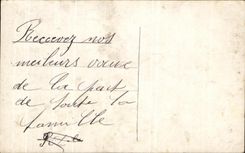 Recevez nos
meilleurs voeux
de la part
de toute la
famille